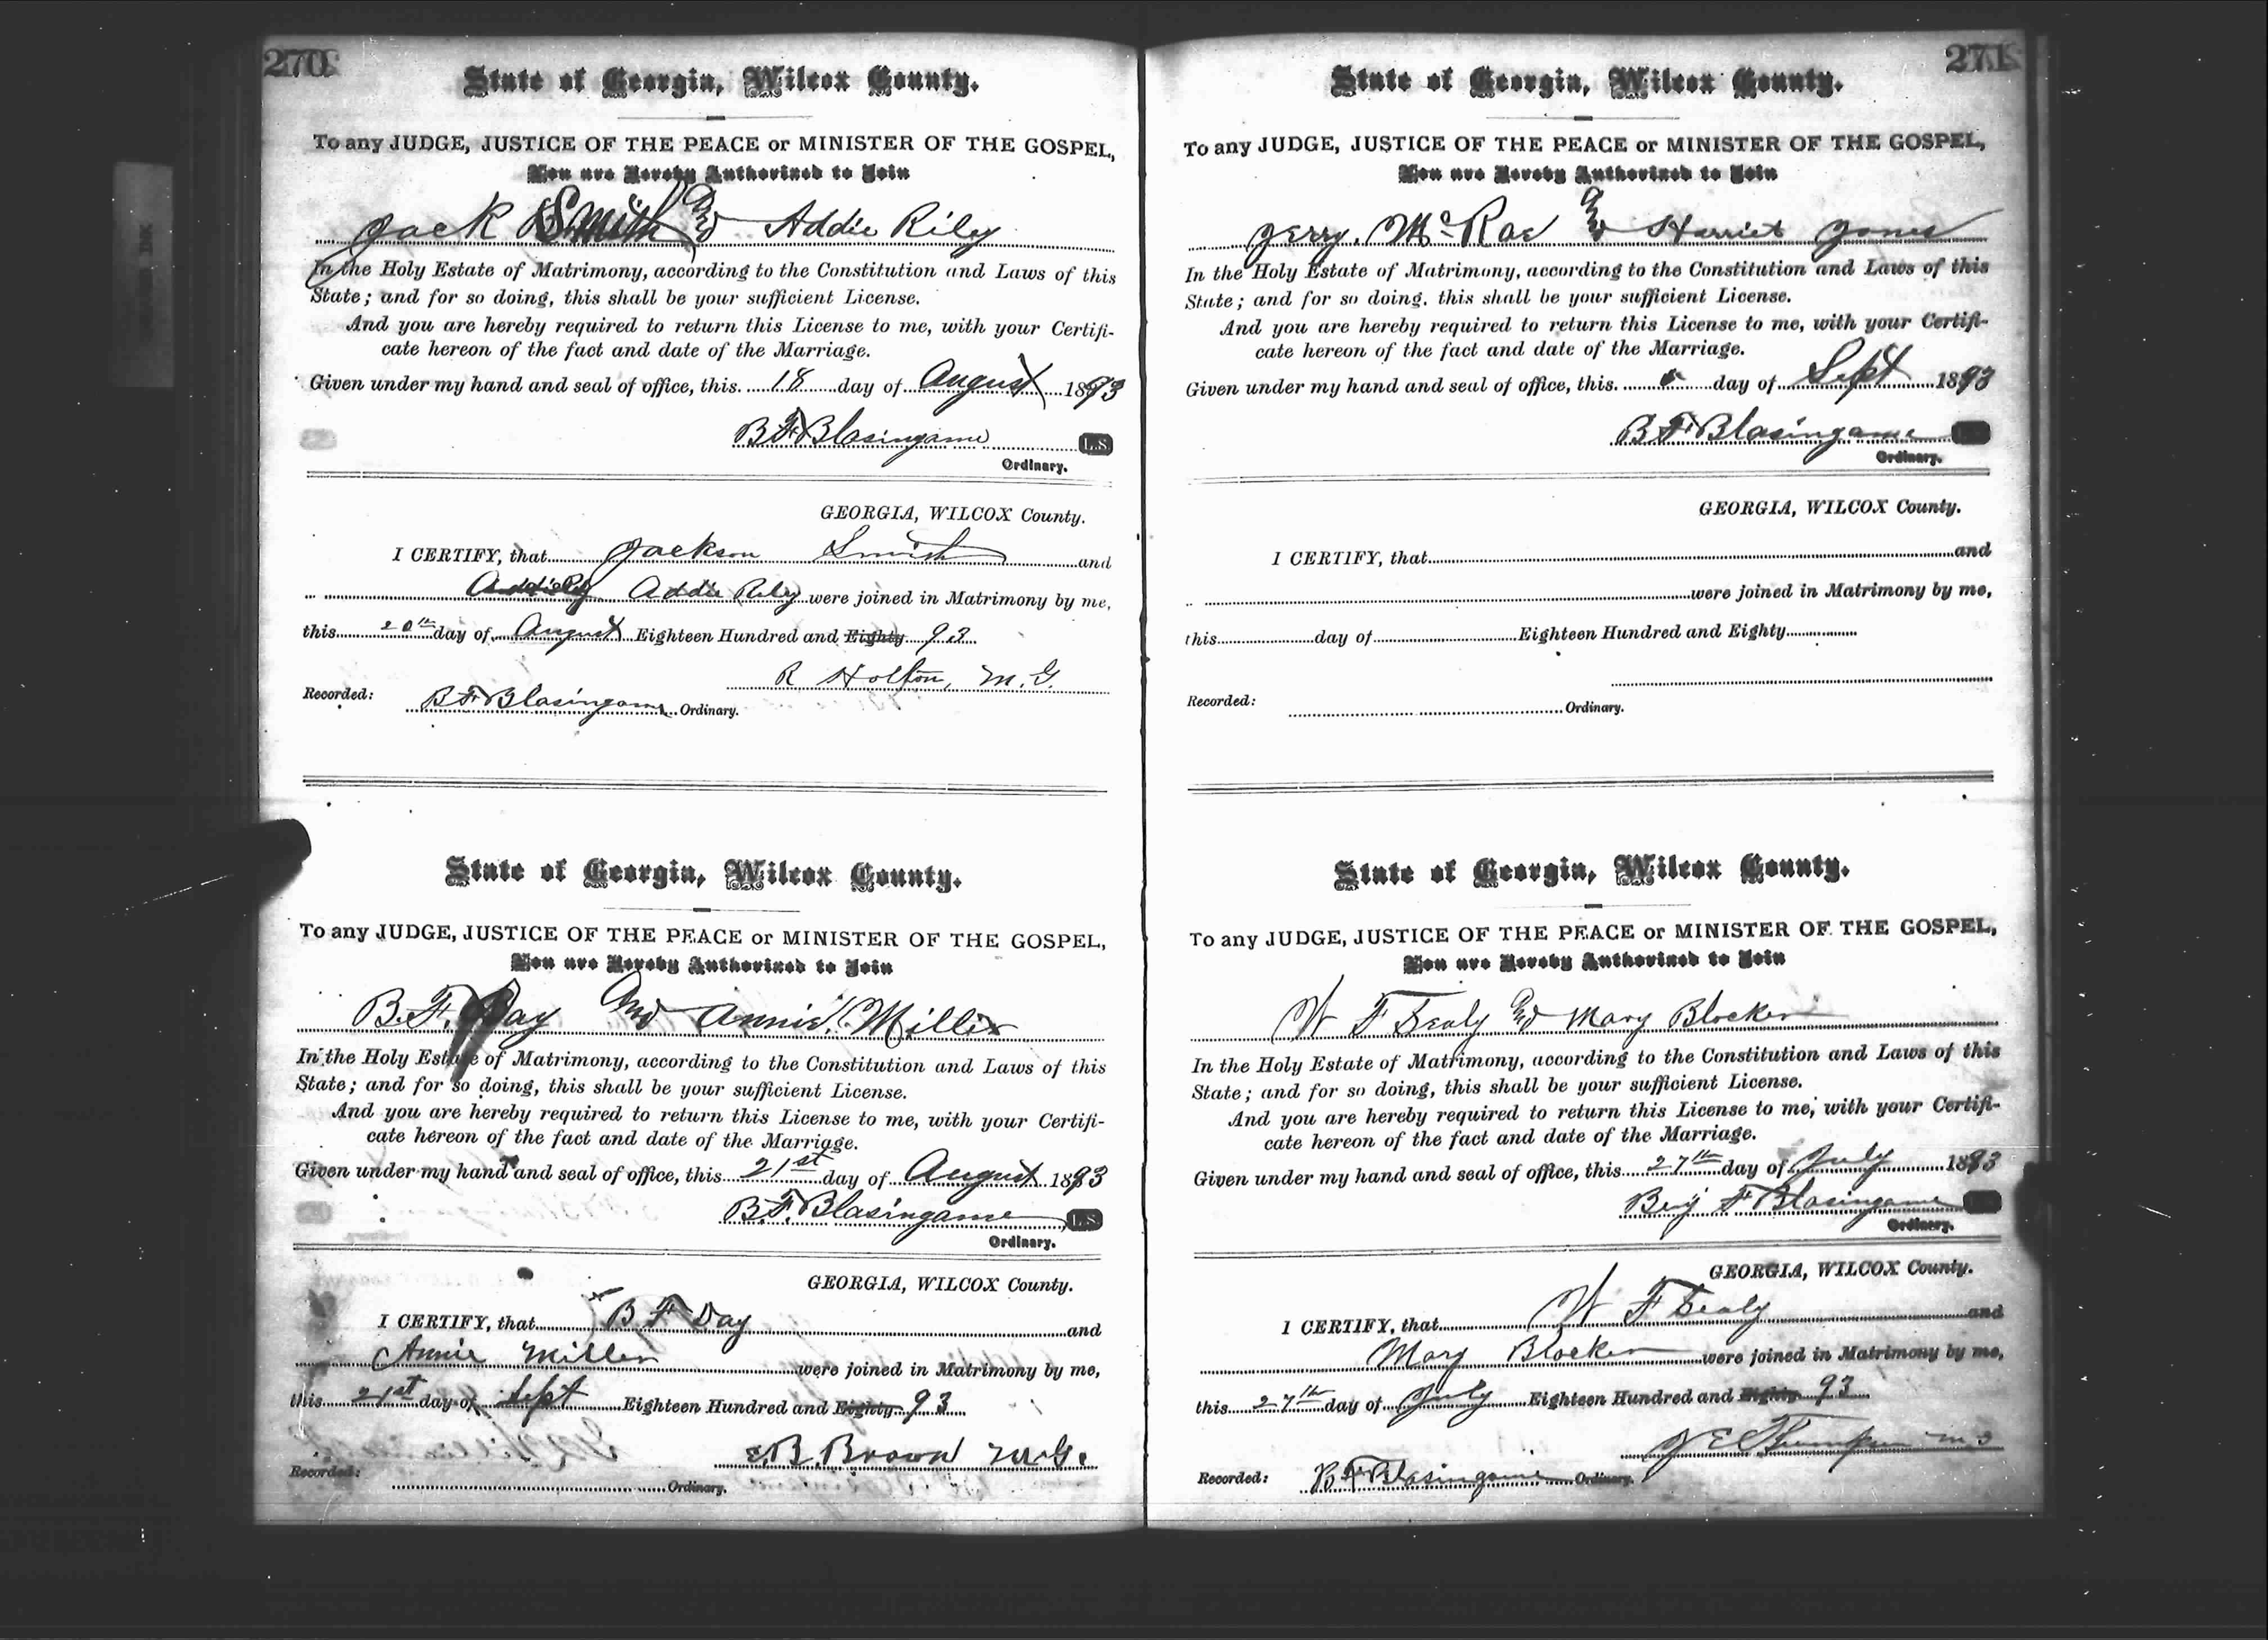 270
State of Georgia, Wilcox County.
To any JUDGE, JUSTICE OF THE PEACE or MINISTER OF THE GOSPEL,
You are Hereby Authorized to Join
Jack Smith And Addie Riley
In the Holy Estate of Matrimony, according to the Constitution and Laws of this
State; and for so doing, this shall be your sufficient License.
And you are hereby required to return this License to me, with your Certifi-
cate hereon of the fact and date of the Marriage.
Given under my hand and seal of office, this 18 day of August 1893
B F Blasingame L.S
Ordinary.
GEORGIA, WILCOX County.
I CERTIFY, that Jackson Smith and
Addie Riley were joined in Matrimony by me,
this 20th day of August Eighteen Hundred and Eighty 93
R Holton, M.G.
Recorded: B F Blasingame Ordinary.
State of Georgia, Wilcox County.
To any JUDGE, JUSTICE OF THE PEACE or MINISTER OF THE GOSPEL,
You are Hereby Authorized to Join
B.F. Day And Annie Miller
In the Holy Estate of Matrimony, according to the Constitution and Laws of this
State; and for so doing, this shall be your sufficient License.
And you are hereby required to return this License to me, with your Certifi-
cate hereon of the fact and date of the Marriage.
Given under my hand and seal of office, this 21st day of August 1893
B.F. Blasingame L.S
Ordinary.
GEORGIA, WILCOX County.
I CERTIFY, that B F Day and
Annie Miller were joined in Matrimony by me,
this 21st day of Sept Eighteen Hundred and Eighty 93
E.B. Brown M.G.
Recorded: Ordinary.
271
State of Georgia, Wilcox County.
To any JUDGE, JUSTICE OF THE PEACE or MINISTER OF THE GOSPEL,
You are Hereby Authorized to Join
Jerry McRae And Harriet Jones
In the Holy Estate of Matrimony, according to the Constitution and Laws of this
State; and for so doing, this shall be your sufficient License.
And you are hereby required to return this License to me, with your Certifi-
cate hereon of the fact and date of the Marriage.
Given under my hand and seal of office, this day of Sept 1893
B F Blasingame
Ordinary.
GEORGIA, WILCOX County.
I CERTIFY, that and
were joined in Matrimony by me,
this day of Eighteen Hundred and Eighty
Recorded: Ordinary.
State of Georgia, Wilcox County.
To any JUDGE, JUSTICE OF THE PEACE or MINISTER OF THE GOSPEL,
You are Hereby Authorized to Join
W F Sealy And Mary Blocker
In the Holy Estate of Matrimony, according to the Constitution and Laws of this
State; and for so doing, this shall be your sufficient License.
And you are hereby required to return this License to me, with your Certifi-
cate hereon of the fact and date of the Marriage.
Given under my hand and seal of office, this 27th day of July 1893
Benj F Blasingame
Ordinary.
GEORGIA, WILCOX County.
I CERTIFY, that W F Sealy and
Mary Blocker were joined in Matrimony by me,
this 27th day of July Eighteen Hundred and Eighty 93
J E
Recorded: B F Blasingame Ordinary.